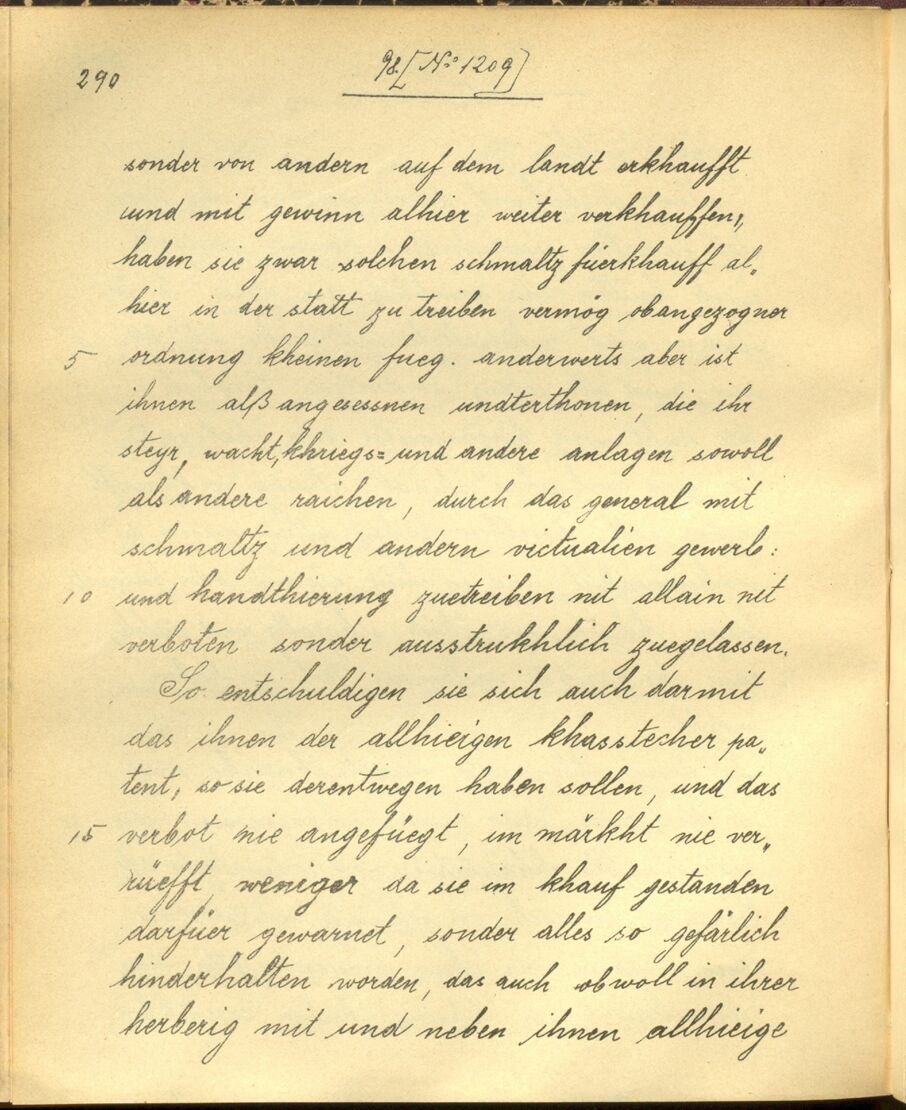 290
98. [No 1209]
sonder von andern auf dem landt erkhaufft
und mit gewinn alhier weiter verkhauffen,
haben sie zwar solchen schmaltz füerkhauff al„
hier in der statt zu treiben vermög obangezogner
5 ordnung kheinen fueg. anderwerts aber ist
ihnen alß angesessnen undterthonen, die ihr
steyr, wacht, khriegs= und andere anlagen sowoll
als andere raichen, durch das general mit
schmaltz und andern victualien gewerb:
10 und handthierung zuetreiben nit allain nit
verboten sonder ausstrukhlich zuegelassen.
So entschuldigen sie sich auch darmit
das ihnen der allhieigen khasstecher pa„
tent, so sie derentwegen haben sollen, und das
15 verbot nie angefüegt, im märkht nie ver„
rüefft weniger da sie im khauf gestanden
darfüer gewarnet, sonder alles so gefärlich
hinderhalten worden, das auch obwoll in ihrer
herberig mit und neben ihnen allhieige